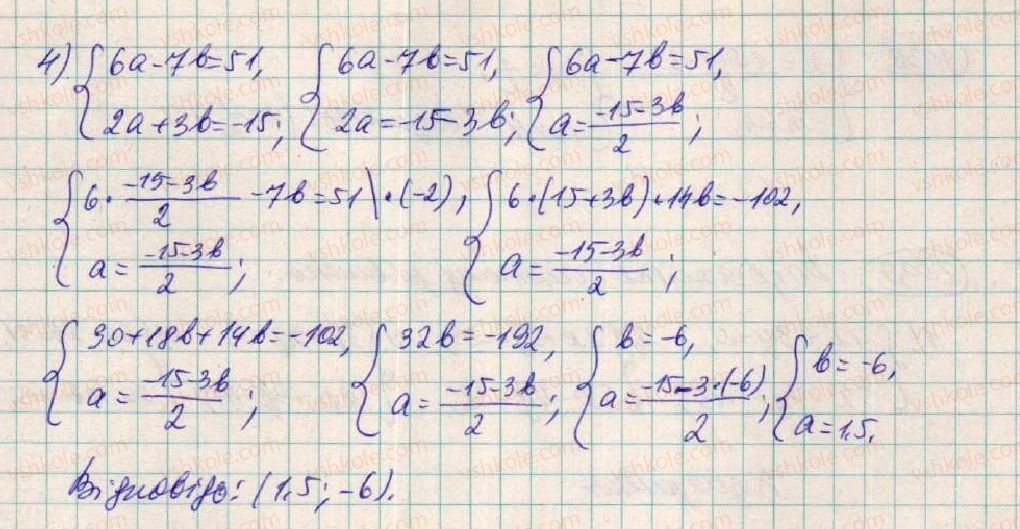 4) { 6a-7b=51, 2a+3b=-15; { 6a-7b=51, 2a=-15-3b; { 6a-7b=51, a=\frac{-15-3b}{2};
{ 6·\frac{-15-3b}{2} -7b=51 \·(-2), a=\frac{-15-3b}{2}; { 6·(15+3b)+14b=-102, a=\frac{-15-3b}{2};
{ 30+18b+14b=-102, a=\frac{-15-3b}{2}; { 32b=-192, a=\frac{-15-3b}{2}; { b=-6, a=\frac{-15-3·(-6)}{2}; { b=-6, a=1,5.
Відповідь: (1,5; -6).